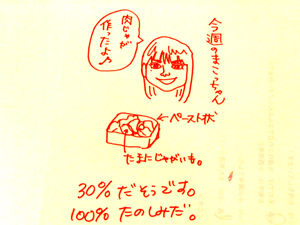 今週のまこっちゃん
肉じゃが
作ったよ♪
←ペースト状
たまにじゃがいも。
30%だそうです。
100%たのしみだ。